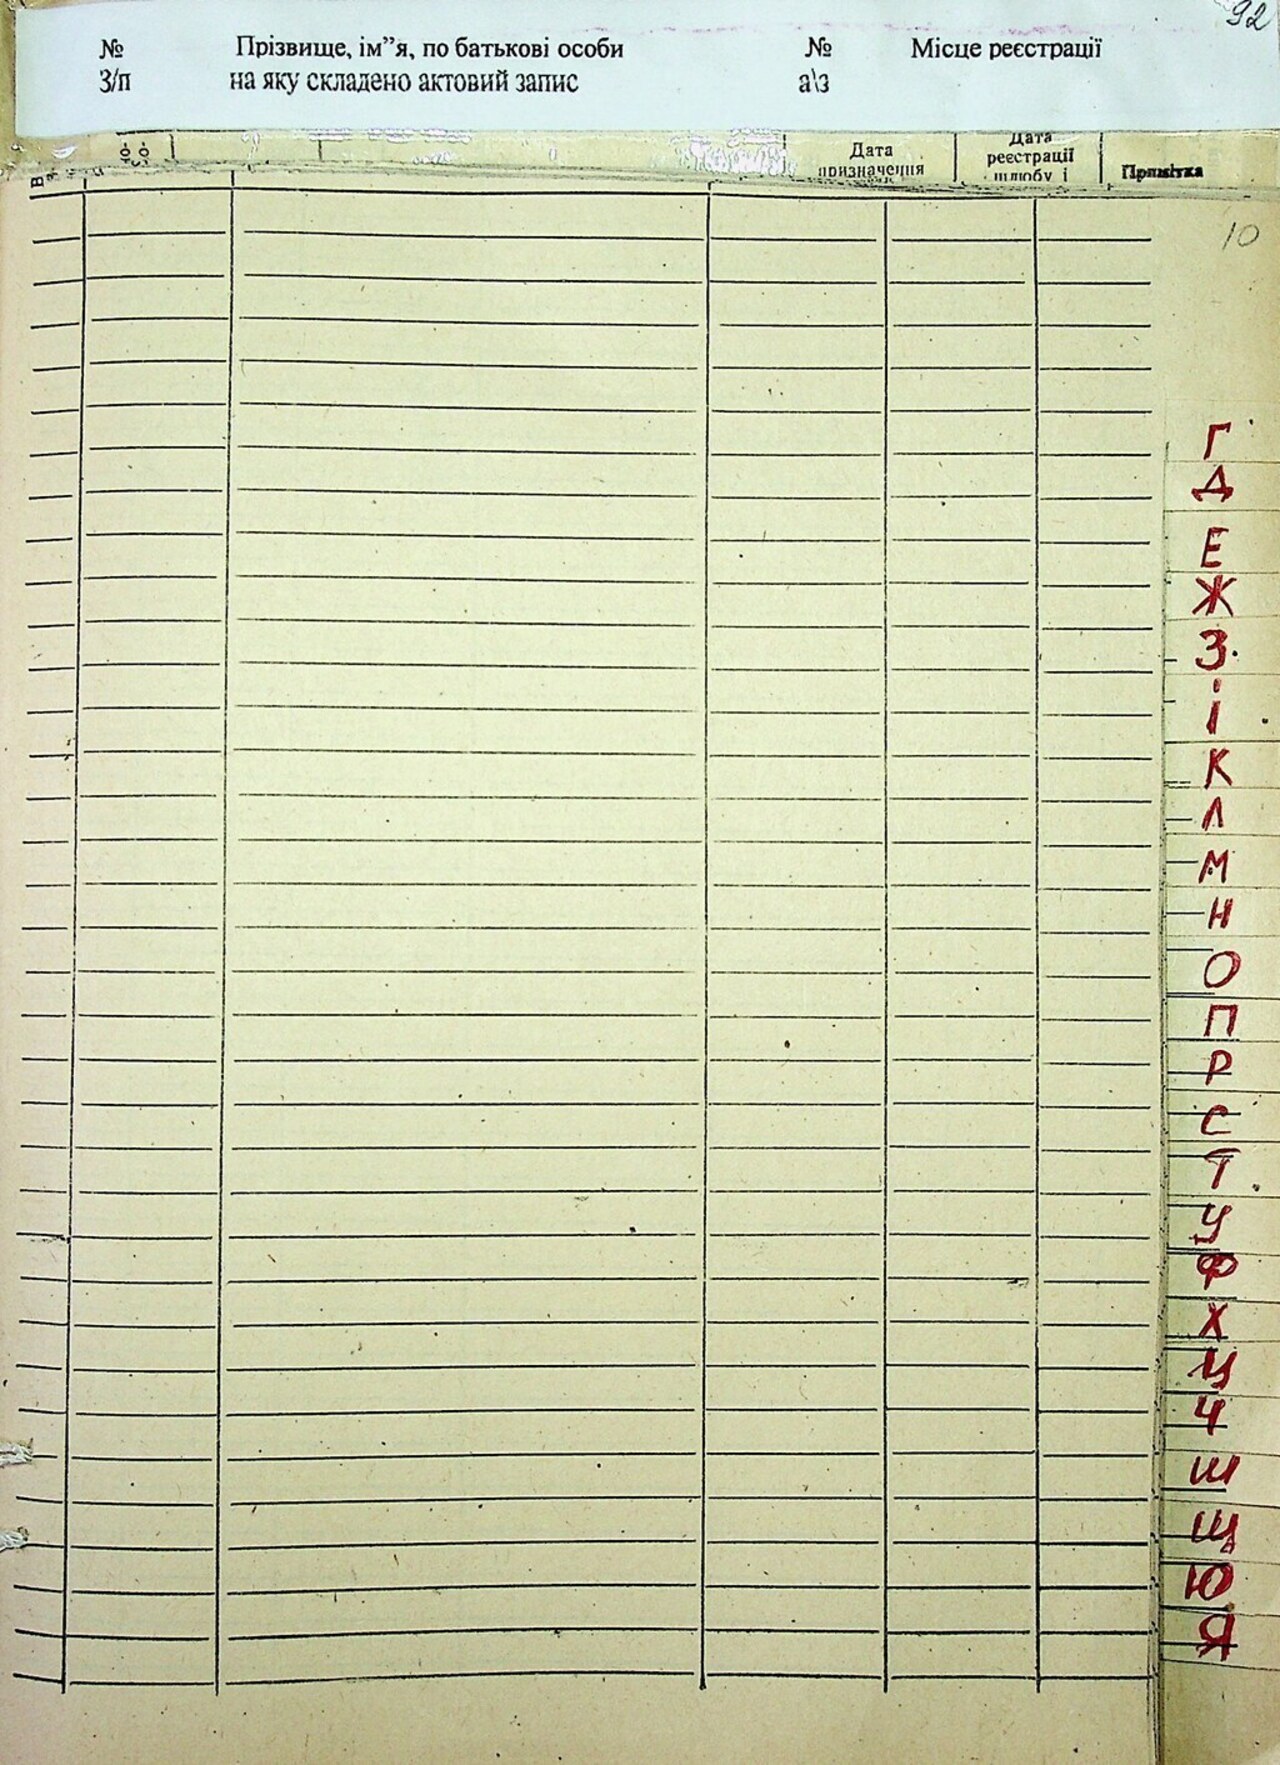 92
№ Прізвище, ім”я, по батькові особи № Місце реєстрації
З/п на яку складено актовий запис а\з
Дата призначення
Дата реєстрації шлюбу і
Примітка
10
Г
Д
Е
Ж
З
і
К
Л
М
Н
О
П
Р
С
Т
У
Ф
Х
Ц
Ч
Ш
Щ
Ю
Я